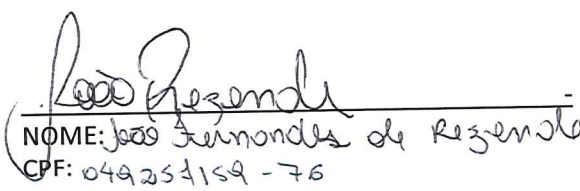 João Rezende
NOME: João Fernandes de Rezende
CPF: 049251159-76